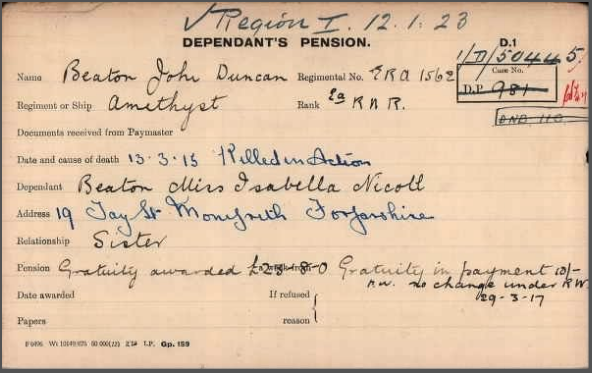 ✓ Region I. 12.1.23
DEPENDANT'S PENSION.
D.1
1/D/50445
Case No.
D.P. 981
Name Beaton John Duncan Regimental No. ERA 1562
Regiment or Ship Amethyst Rank Ea R N R.
Documents received from Paymaster
Date and cause of death 13-3-15 Killed in Action
Dependant Beaton Miss Isabella Nicoll
Address 19 Tay St Monifieth Forfarshire
Relationship Sister
Pension Gratuity awarded £23-8-0 Gratuity in payment 10/-
p.w. no change under R.W.
29-3-17
Date awarded If refused
Papers reason
Gp. 159